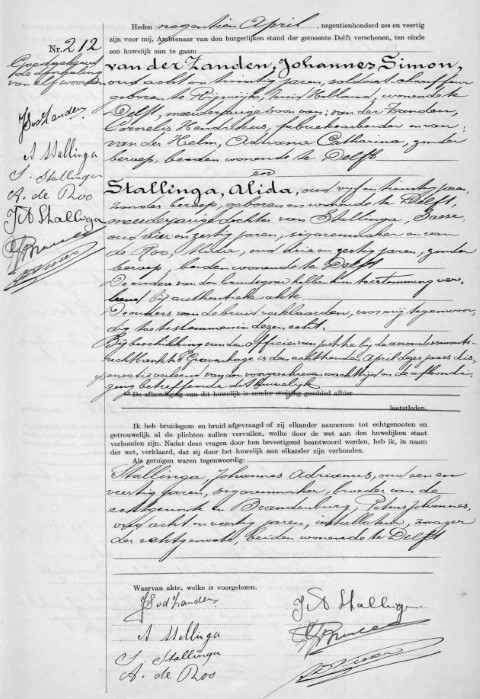 Nr. 212
Goedgekeurd
de doorhaling
van elf woorden
JS vd Zanden
A Stallinga
S. Stallinga
A. de Roo
J A Stallinga
Heden negentien April, negentienhonderd zes en veertig
zijn voor mij, Ambtenaar van den burgerlijken stand der gemeente Delft verschenen, ten einde
een huwelijk aan te gaan:
van der Zanden, Johannes Simon,
oud acht en twintig jaren, soldaat-chauffeur
geboren te Rijswijk, Zuid Holland, wonende te
Delft, meerderjarige zoon van: van der Zanden,
Cornelis Hendrikus, fabrieksarbeider en van:
van der Helm, Adriana Catharina, zonder
beroep, beiden wonende te Delft
en
Stallinga, Alida, oud vijf en twintig jaar,
zonder beroep, geboren en wonende te Delft,
meerderjarige dochter van Stallinga,
oud en zestig jaren, sigarenmaker en van
de Roo, oud drie en zestig jaren, zonder
beroep, beiden wonende te Delft
De ouders van den bruidegom hebben hun toestemming ver-
leend bij authentieke akte
De ouders van de bruid verklaarden, voor mij tegenwoor-
dig toe te stemmen in dezen echt.
Bij beschikking van den Officier van justitie bij de arrondissements-
rechtbank te 's Gravenhage is den achttienden April dezes jaars dis-
pensatie verleend van den voorgeschreven wachttijd en de afkondi-
ging betreffende dit huwelijk
De afkondiging van dit huwelijk is zonder stuiting geschied alhier
laatstleden.
Ik heb bruidegom en bruid afgevraagd of zij elkander aannemen tot echtgenooten en
getrouwelijk al de plichten zullen vervullen, welke door de wet aan den huwelijken staat
verbonden zijn. Nadat deze vragen door hen bevestigend beantwoord werden, heb ik, in naam
der wet, verklaard, dat zij door het huwelijk aan elkander zijn verbonden.
Als getuigen waren tegenwoordig:
Stallinga, Johannes Adrianus, oud een en
veertig jaren, sigarenmaker, broeder van de
echtgenoote en Brandenburg, Petrus Johannes,
oud acht en veertig jaren, installateur, zwager
der echtgenoote, beiden wonende te Delft
Waarvan akte, welke is voorgelezen.
JS vd Zanden
A Stallinga
S. Stallinga
A. de Roo
J A Stallinga